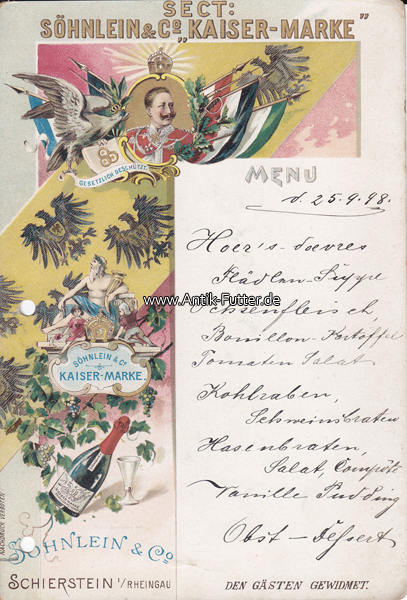 SECT:
SÖHNLEIN & Cº „KAISER-MARKE"
GESETZLICH GESCHÜTZT.
MENU
d. 25.9.98.
Hoer's-doevres
Flädlen-Suppe
Ochsenfleisch,
Bouillon-Kartoffel
Tomaten Salat
Kohlraben,
Schweinsbraten
Hasenbraten,
Salat, Compôte
Vanille Pudding
Obst – Dessert
www.Antik-Futter.de
SÖHNLEIN & Cº
KAISER-MARKE.
NACHDRUCK VERBOTEN
SÖHNLEIN & Cº
SCHIERSTEIN i/RHEINGAU
DEN GÄSTEN GEWIDMET.